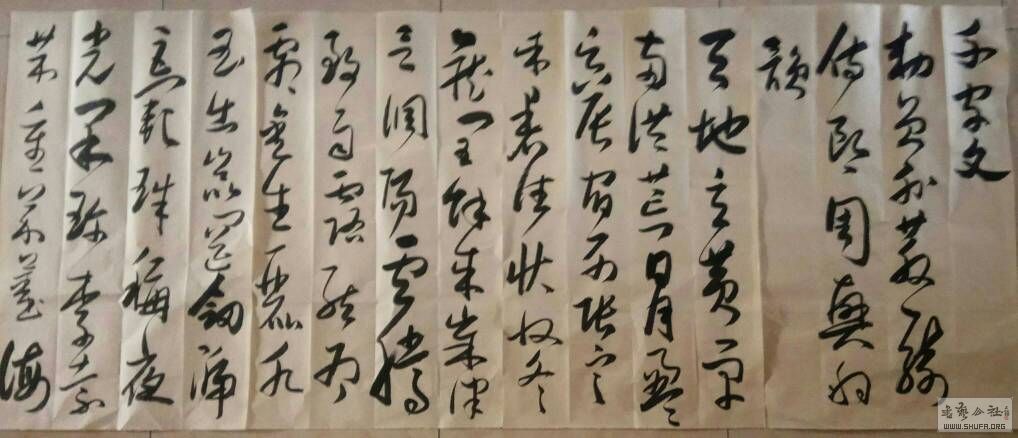 千字文
勑員外散騎
侍郎周興嗣
韻
天地玄黃宇
宙洪荒日月盈
昃辰宿列張寒
來暑往秋收冬
藏閏餘成歲律
呂調陽雲騰
致雨露結為
霜金生麗水
玉出崑岡劍號
巨闕珠稱夜
光果珍李柰
菜重芥薑海
书艺公社
WWW.SHUFA.ORG